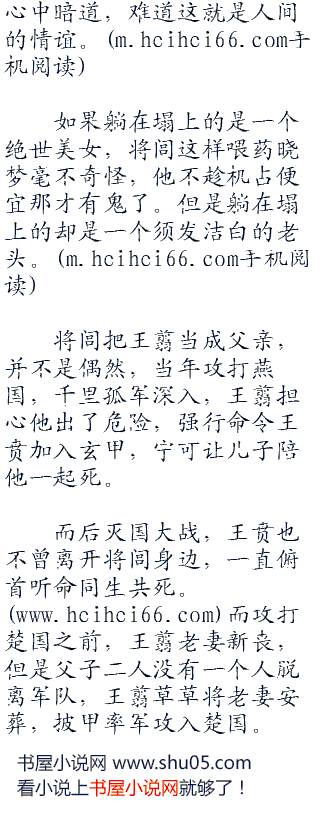 心中暗道，难道这就是人间
的情谊。(m.hcihci66.com手
机阅读)
如果躺在塌上的是一个
绝世美女，将闾这样喂药晓
梦毫不奇怪，他不趁机占便
宜那才有鬼了。但是躺在塌
上的却是一个须发洁白的老
头。(m.hcihci66.com手机阅
读)
将闾把王翦当成父亲，
并不是偶然，当年攻打燕
国，千里孤军深入，王翦担
心他出了危险，强行命令王
贲加入玄甲，宁可让儿子陪
他一起死。
而后灭国大战，王贲也
不曾离开将闾身边，一直俯
首听命同生共死。
(www.hcihci66.com)而攻打
楚国之前，王翦老妻新丧，
但是父子二人没有一个人脱
离军队，王翦草草将老妻安
葬，披甲率军攻入楚国。
书屋小说网 www.shu05.com
看小说上书屋小说网就够了！